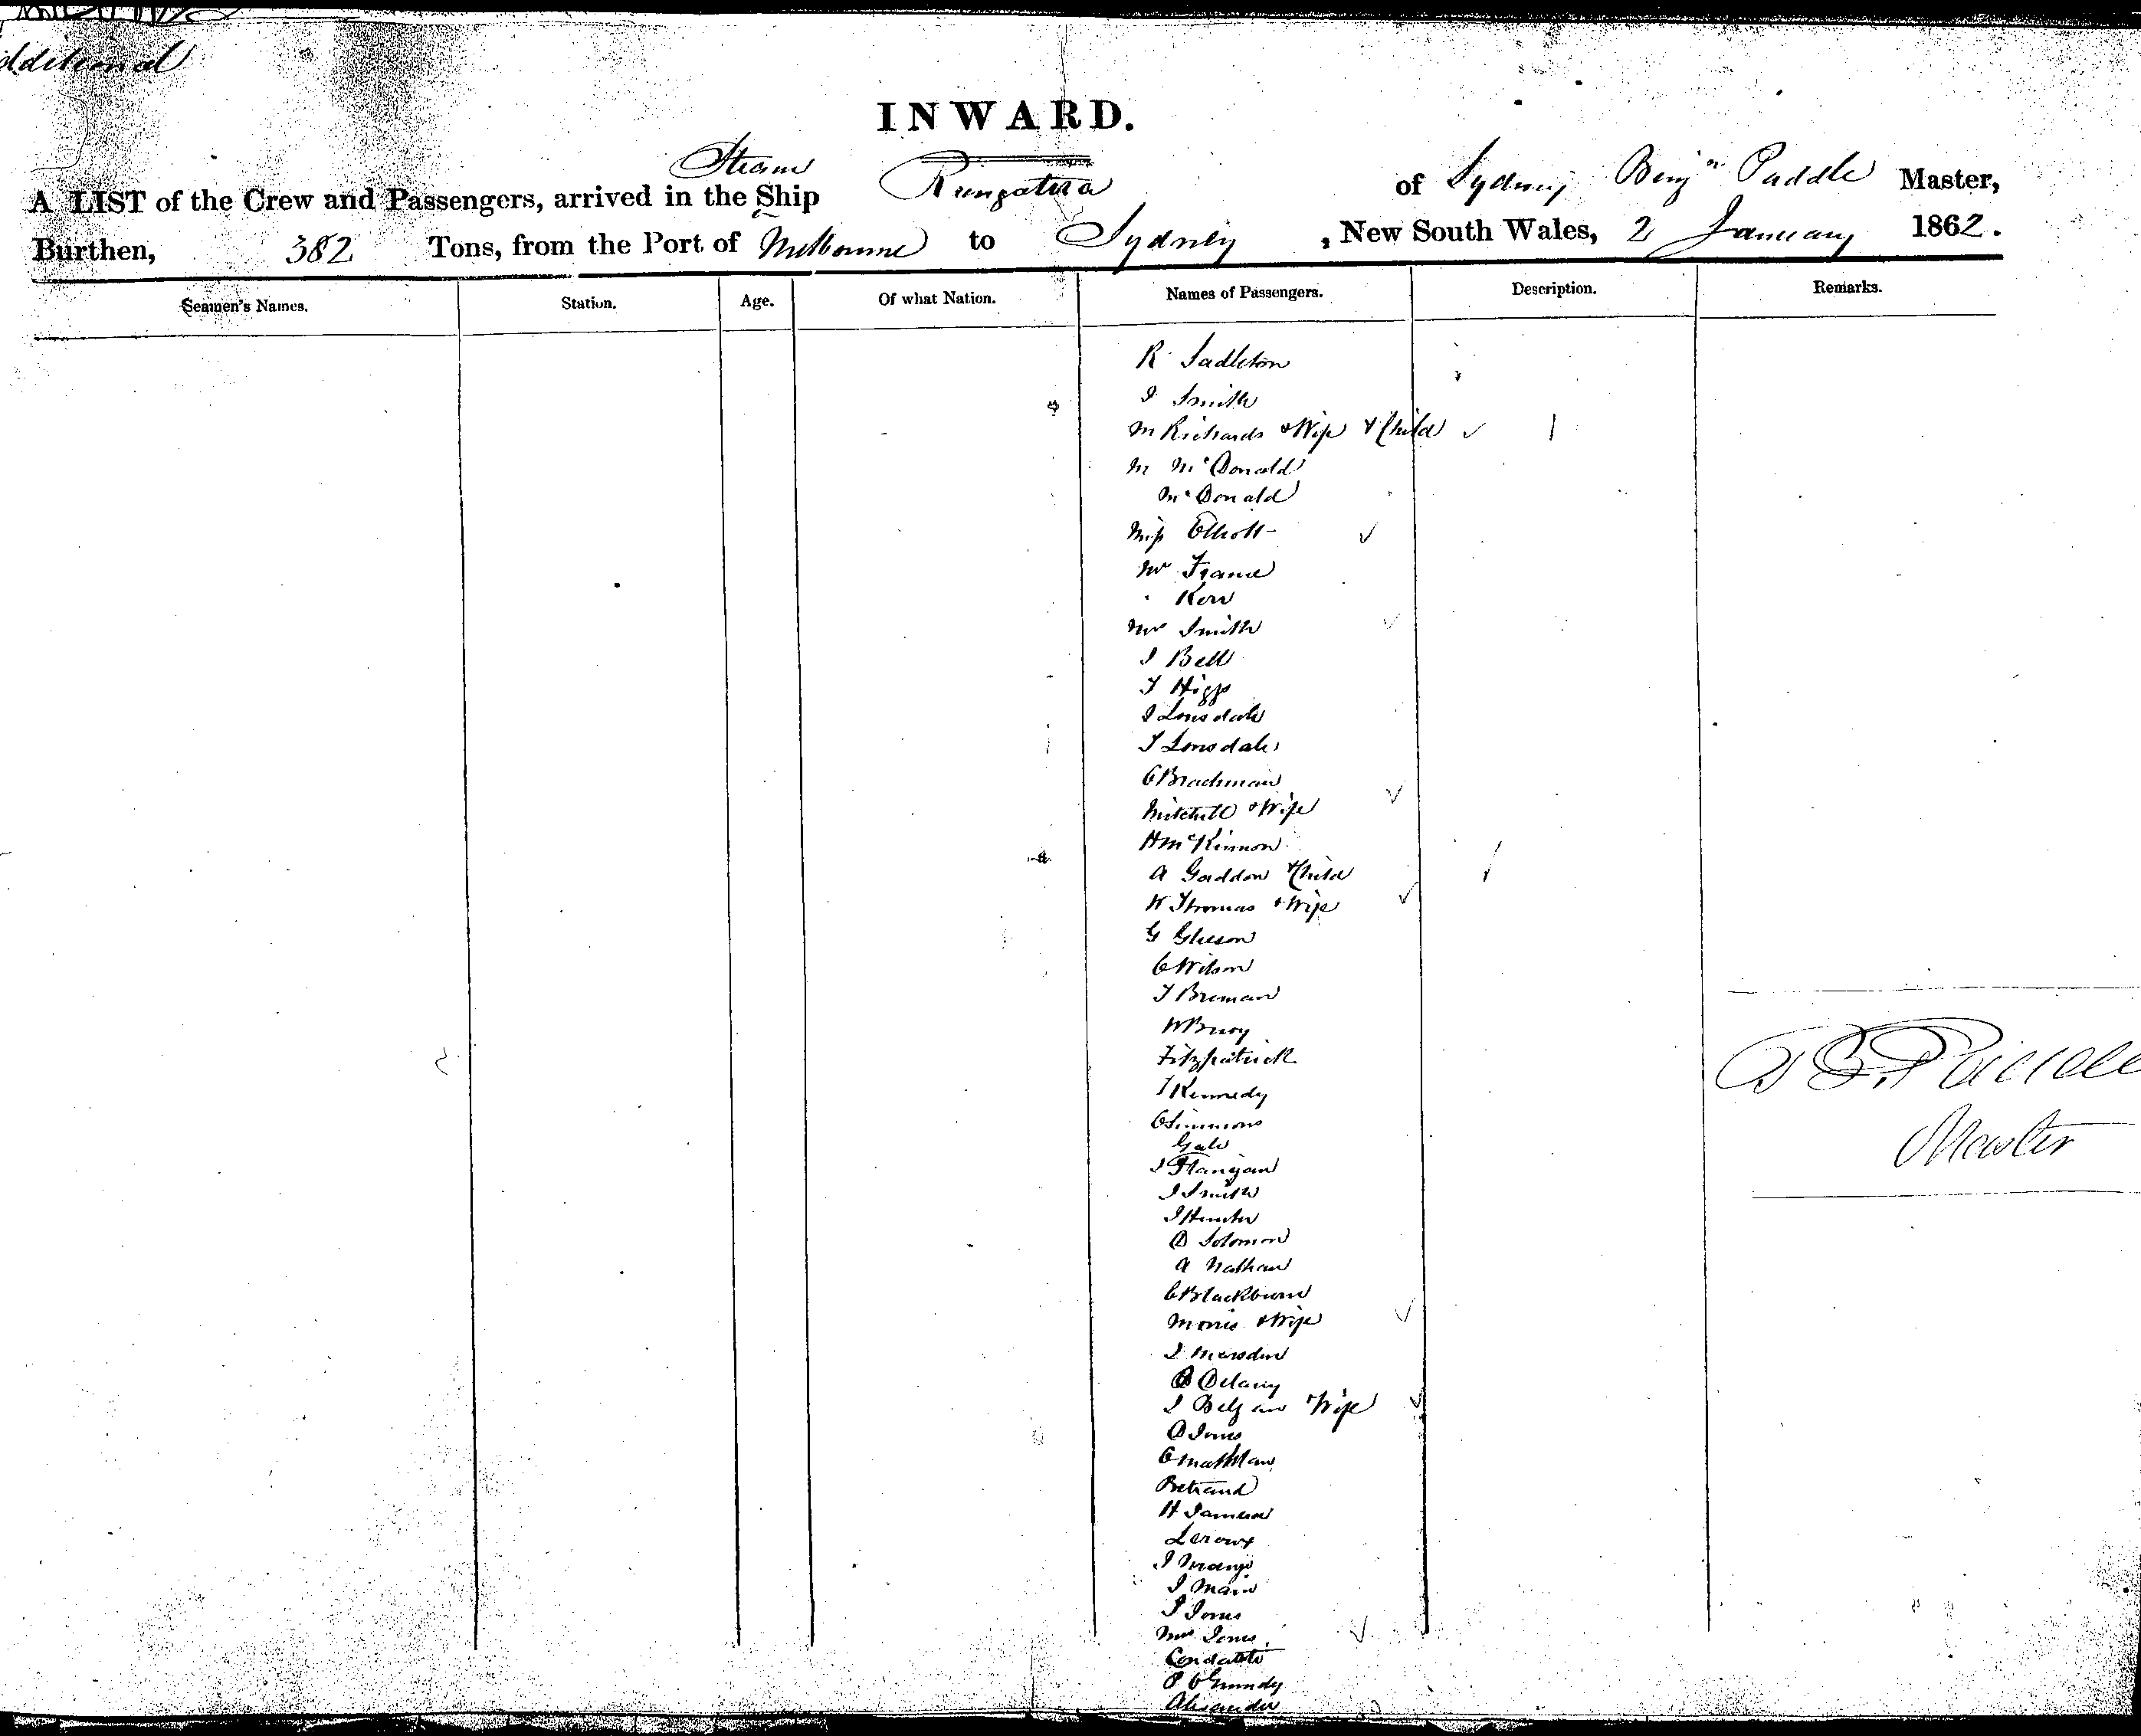 dditional
INWARD.
A LIST of the Crew and Passengers, arrived in the Steam Ship Rungatira of Sydney Benjn Paddle Master,
Burthen, 382 Tons, from the Port of Melbourne to Sydney , New South Wales, 2 January 1862.
Seamen's Names. Station. Age. Of what Nation. Names of Passengers. Description. Remarks.
R Sadleton
I Smith
M Richards & Wife & Child
M McDonald
McDonald
Miss Elliott
Mr France
Kerr
Mrs Smith
I Bell
T Higgs
I Lonsdale
T Lonsdale
C Brachman
Mitchell & Wife
H McKinnon
A Gaddon & Child
W Thomas & Wife
G Gleeson
C Wilson
T Brennan
W Buoy
Fitzpatrick
T Kennedy
C Simmons
Gale
I Flanigan
I Smith
I Hunter
D Solomon
A Nathan
C Blackburn
Morris & Wife
I Marsden
Delany
I Wife
D Jones
C
Betrand
H Jameson
Leroux
I
I Main
I Jones
Mrs Jones
P Grundy
Alexander
B Paddle
Master